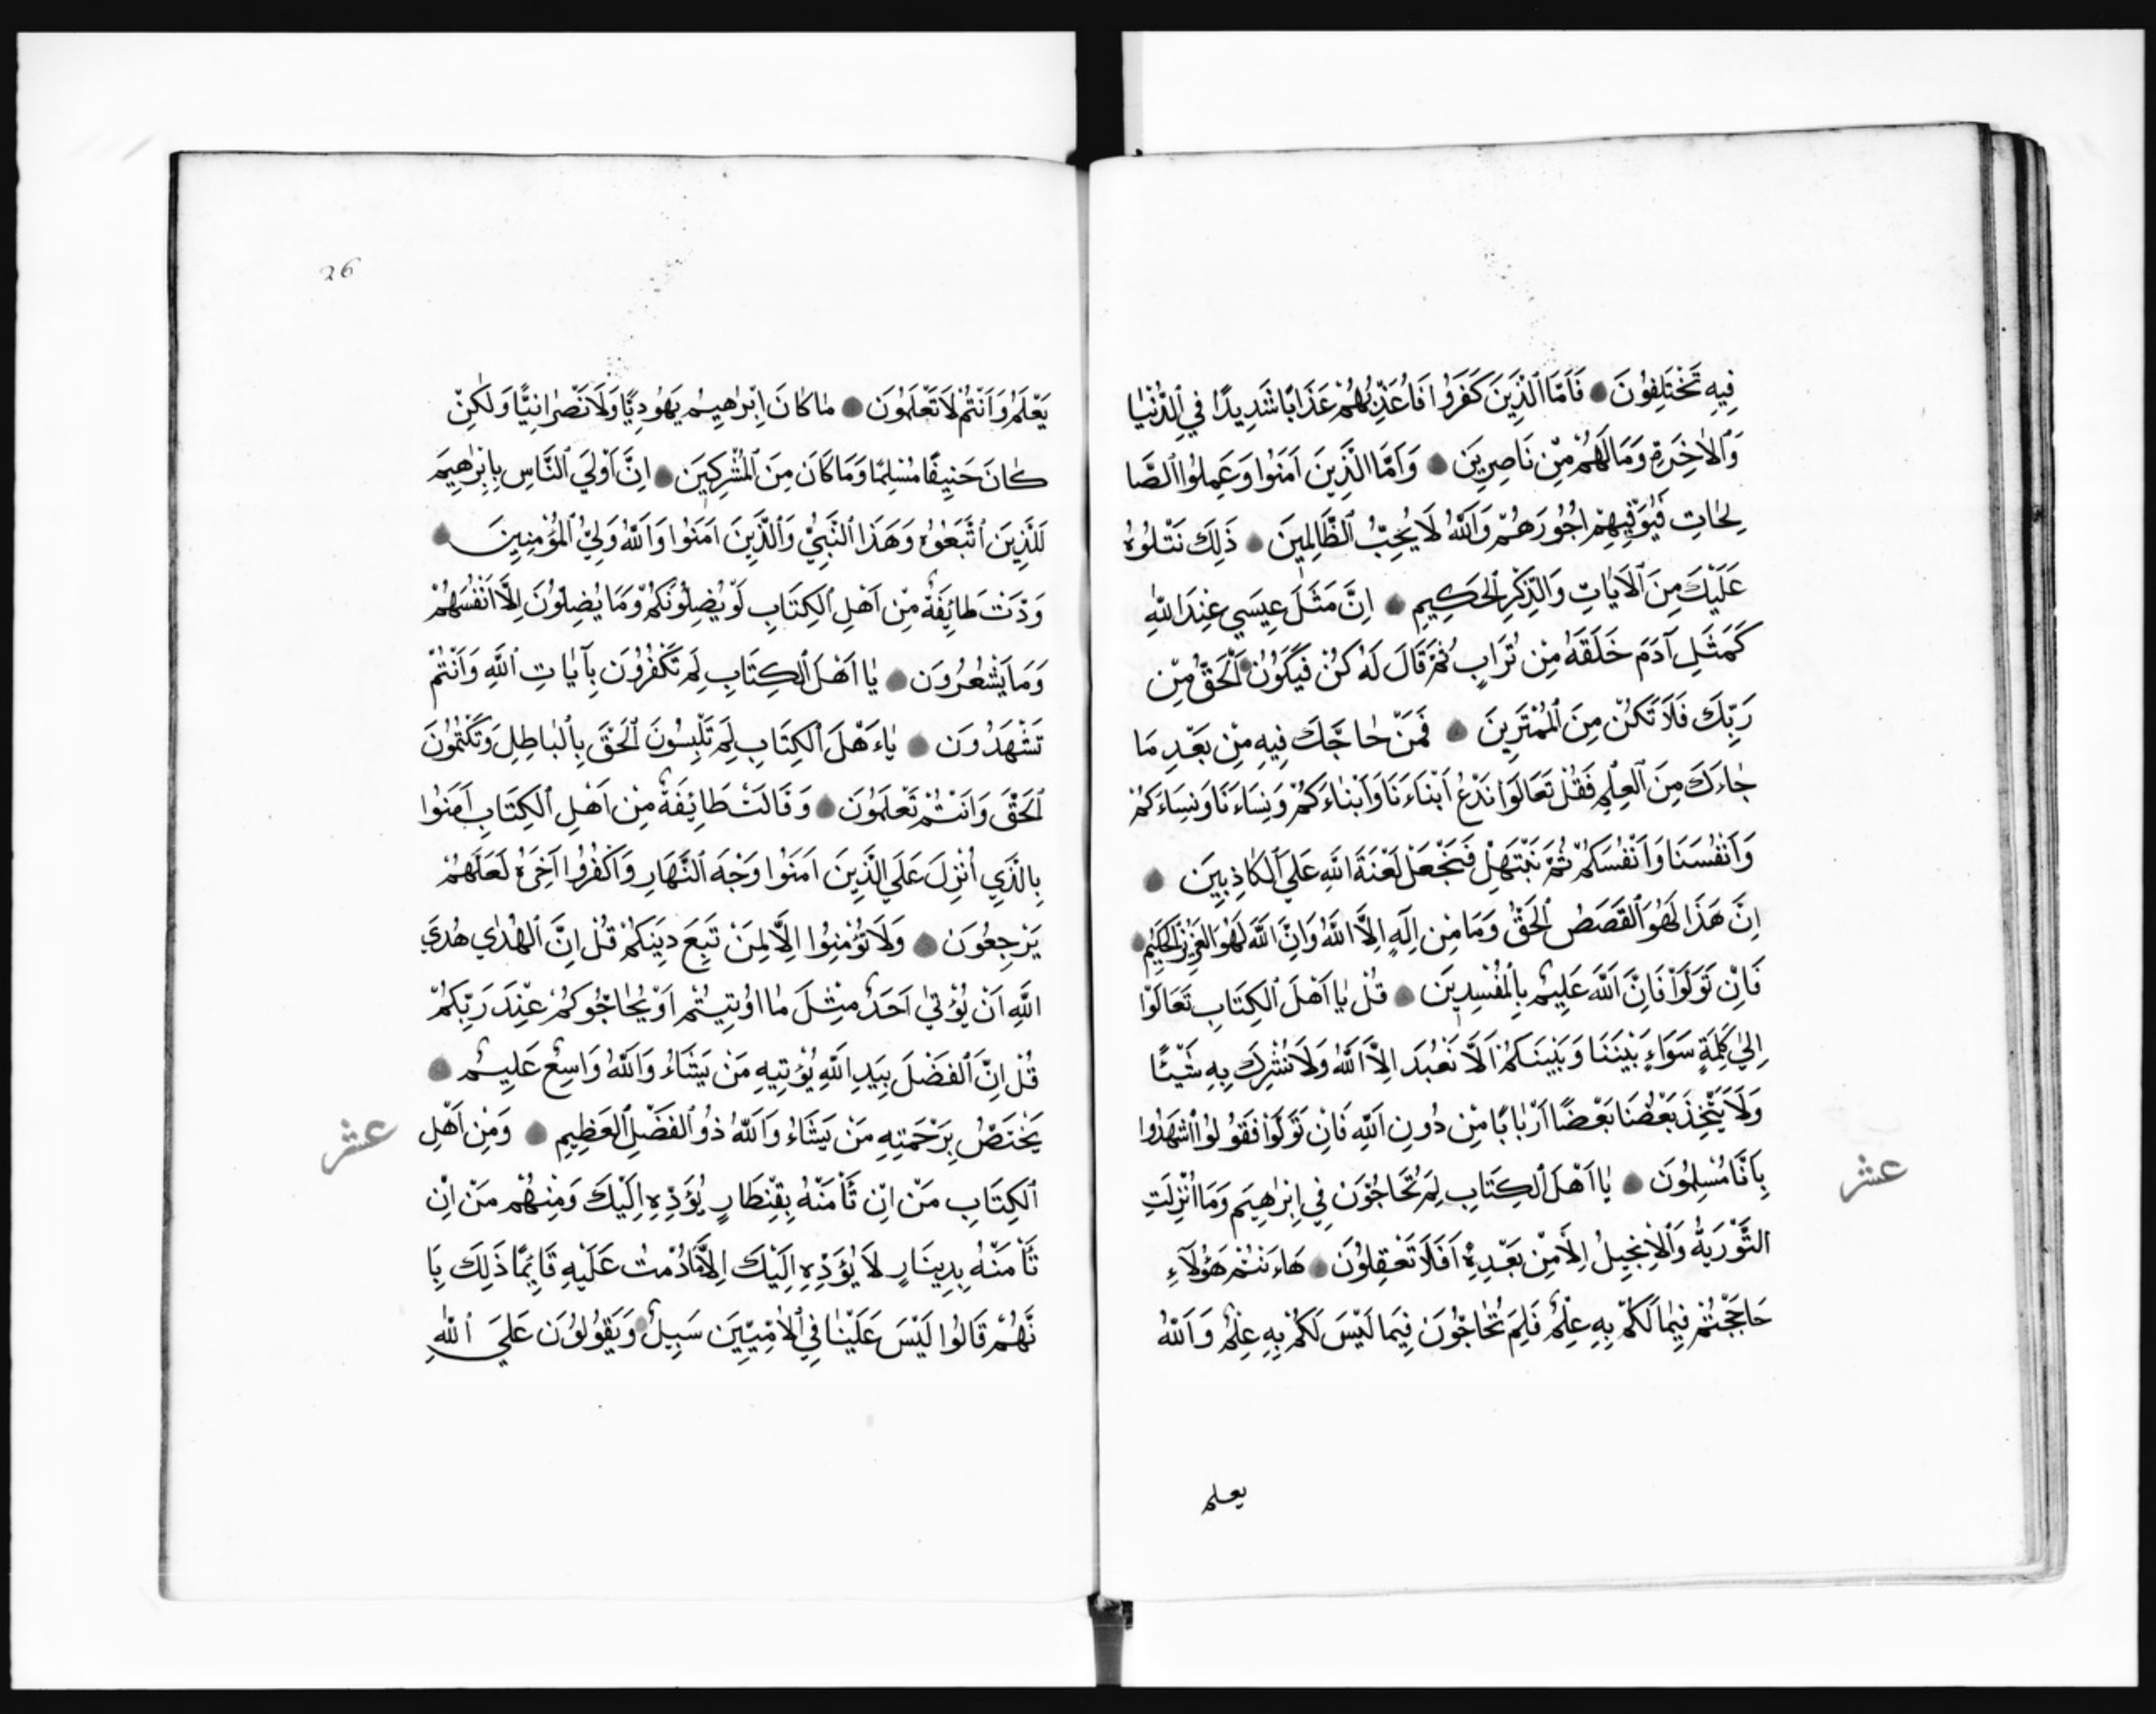 فِيهِ تَخْتَلِفُونَ ۝ فَأَمَّا الَّذِينَ كَفَرُوا فَأُعَذِّبُهُمْ عَذَابًا شَدِيدًا فِي الدُّنْيَا
وَالْاٰخِرَةِ وَمَا لَهُمْ مِنْ نَاصِرِينَ ۝ وَاَمَّا الَّذِينَ اٰمَنُوا وَعَمِلُوا الصَّا
لِحَاتِ فَيُوَفِّيهِمْ اُجُورَهُمْ وَاللّٰهُ لَا يُحِبُّ الظَّالِمِينَ ۝ ذَلِكَ نَتْلُوهُ
عَلَيْكَ مِنَ الْاٰيَاتِ وَالذِّكْرِ الْحَكِيمِ ۝ اِنَّ مَثَلَ عِيسَي عِنْدَ اللّٰهِ
كَمَثَلِ آدَمَ خَلَقَهُ مِنْ تُرَابٍ ثُمَّ قَالَ لَهُ كُنْ فَيَكُونُ ۝ اَلْحَقُّ مِنْ
رَبِّكَ فَلَا تَكُنْ مِنَ الْمُمْتَرِينَ ۝ فَمَنْ حَاجَّكَ فِيهِ مِنْ بَعْدِ مَا
جَاءَكَ مِنَ الْعِلْمِ فَقُلْ تَعَالَوْا نَدْعُ اَبْنَاءَنَا وَاَبْنَاءَكُمْ وَنِسَاءَنَا وَنِسَاءَكُمْ
وَاَنْفُسَنَا وَاَنْفُسَكُمْ ثُمَّ نَبْتَهِلْ فَنَجْعَلْ لَعْنَةَ اللّٰهِ عَلَي الْكَاذِبِينَ ۝
اِنَّ هَذَا لَهُوَ الْقَصَصُ الْحَقُّ وَمَا مِنْ اِلَهٍ اِلَّا اللّٰهُ وَاِنَّ اللّٰهَ لَهُوَ الْعَزِيزُ الْحَكِيمُ ۝
فَاِنْ تَوَلَّوْا فَاِنَّ اللّٰهَ عَلِيمٌ بِالْمُفْسِدِينَ ۝ قُلْ يَا اَهْلَ الْكِتَابِ تَعَالَوْا
اِلَيٰ كَلِمَةٍ سَوَاءٍ بَيْنَنَا وَبَيْنَكُمْ اَلَّا نَعْبُدَ اِلَّا اللّٰهَ وَلَا نُشْرِكَ بِهِ شَيْئًا
وَلَا يَتَّخِذَ بَعْضُنَا بَعْضًا اَرْبَابًا مِنْ دُونِ اللّٰهِ فَاِنْ تَوَلَّوْا فَقُولُوا اشْهَدُوا
بِاَنَّا مُسْلِمُونَ ۝ يَا اَهْلَ الْكِتَابِ لِمَ تُحَاجُّونَ فِي اِبْرٰهِيمَ وَمَا اُنْزِلَتِ
عشر
التَّوْرَيةُ وَالْاِنْجِيلُ اِلَّا مِنْ بَعْدِهِ اَفَلَا تَعْقِلُونَ ۝ هَاءَنْتُمْ هَؤُلَآءِ
حَاجَجْتُمْ فِيمَا لَكُمْ بِهِ عِلْمٌ فَلِمَ تُحَاجُّونَ فِيمَا لَيْسَ لَكُمْ بِهِ عِلْمٌ وَاللّٰهُ
يعلم
26
يَعْلَمُ وَاَنْتُمْ لَا تَعْلَمُونَ ۝ مَا كَانَ اِبْرٰهِيمُ يَهُودِيًّا وَلَا نَصْرَانِيًّا وَلَكِنْ
كَانَ حَنِيفًا مُسْلِمًا وَمَا كَانَ مِنَ الْمُشْرِكِينَ ۝ اِنَّ اَوْلَيَ النَّاسِ بِاِبْرٰهِيمَ
لَلَّذِينَ اتَّبَعُوهُ وَهَذَا النَّبِيُّ وَالَّذِينَ اٰمَنُوا وَاللّٰهُ وَلِيُّ الْمُؤْمِنِينَ ۝
وَدَّتْ طَائِفَةٌ مِنْ اَهْلِ الْكِتَابِ لَوْ يُضِلُّونَكُمْ وَمَا يُضِلُّونَ اِلَّا اَنْفُسَهُمْ
وَمَا يَشْعُرُونَ ۝ يَا اَهْلَ الْكِتَابِ لِمَ تَكْفُرُونَ بِآيَاتِ اللّٰهِ وَاَنْتُمْ
تَشْهَدُونَ ۝ يَاءَهْلَ الْكِتَابِ لِمَ تَلْبِسُونَ الْحَقَّ بِالْبَاطِلِ وَتَكْتُمُونَ
الْحَقَّ وَاَنْتُمْ تَعْلَمُونَ ۝ وَقَالَتْ طَائِفَةٌ مِنْ اَهْلِ الْكِتَابِ اٰمَنُوا
بِالَّذِي اُنْزِلَ عَلَي الَّذِينَ اٰمَنُوا وَجْهَ النَّهَارِ وَاكْفُرُوا آخِرَهُ لَعَلَّهُمْ
يَرْجِعُونَ ۝ وَلَا تُؤْمِنُوا اِلَّا لِمَنْ تَبِعَ دِينَكُمْ قُلْ اِنَّ الْهُدَي هُدَي
اللّٰهِ اَنْ يُؤْتَيٰ اَحَدٌ مِثْلَ مَا اُوتِيتُمْ اَوْ يُحَاجُّوكُمْ عِنْدَ رَبِّكُمْ
قُلْ اِنَّ الْفَضْلَ بِيَدِ اللّٰهِ يُؤْتِيهِ مَنْ يَشَاءُ وَاللّٰهُ وَاسِعٌ عَلِيمٌ ۝
يَخْتَصُّ بِرَحْمَتِهِ مَنْ يَشَاءُ وَاللّٰهُ ذُو الْفَضْلِ الْعَظِيمِ ۝ وَمِنْ اَهْلِ
عشر
الْكِتَابِ مَنْ اِنْ تَأْمَنْهُ بِقِنْطَارٍ يُؤَدِّهِ اِلَيْكَ وَمِنْهُمْ مَنْ اِنْ
تَأْمَنْهُ بِدِينَارٍ لَا يُؤَدِّهِ اِلَيْكَ اِلَّا مَا دُمْتَ عَلَيْهِ قَائِمًا ذَلِكَ بِاَ
نَّهُمْ قَالُوا لَيْسَ عَلَيْنَا فِي الْاُمِّيِّينَ سَبِيلٌ ۝ وَيَقُولُونَ عَلَيَ اللّٰهِ